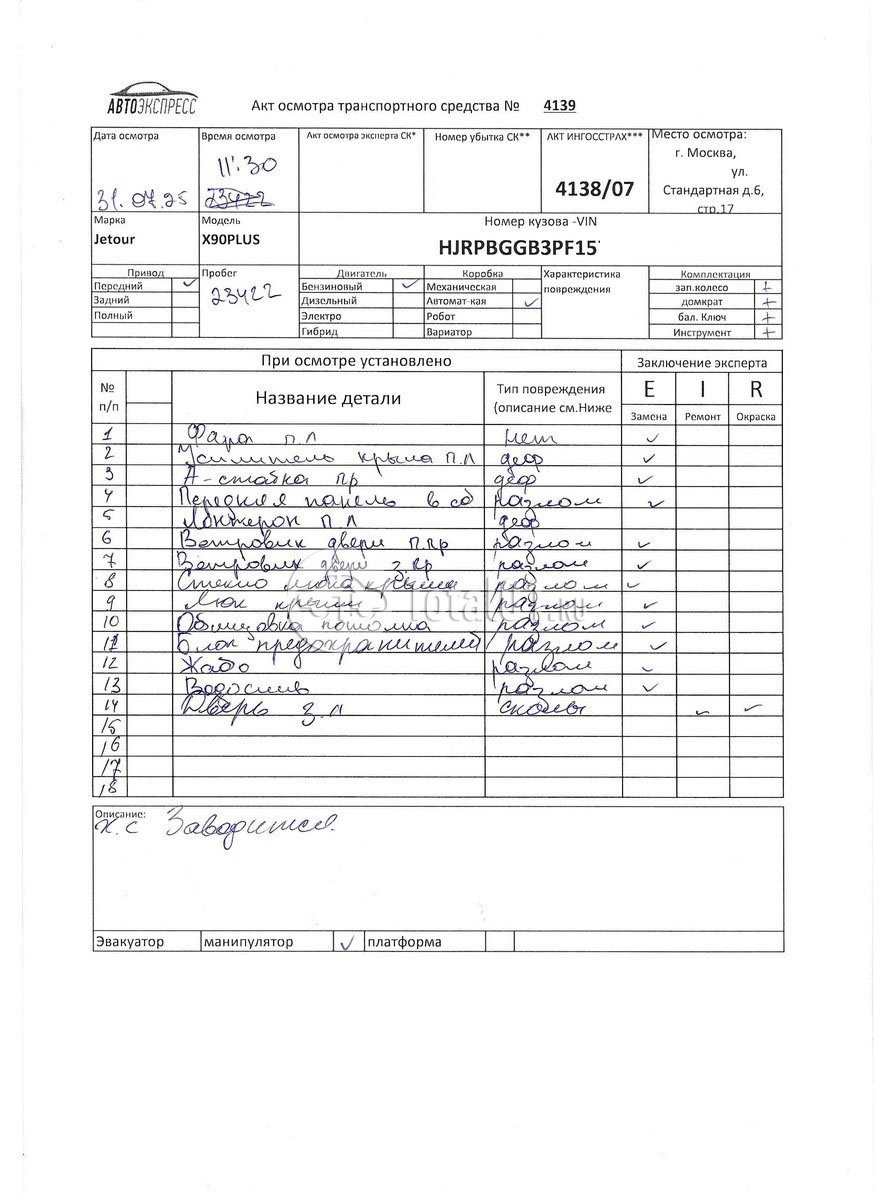 АВТОЭКСПРЕСС
Акт осмотра транспортного средства № 4139
Дата осмотра Время осмотра Акт осмотра эксперта СК* Номер убытка СК** АКТ ИНГОССТРАХ*** Место осмотра:
31.07.25 11:30 23422 4138/07 г. Москва,
ул.
Стандартная д.6,
стр.17
Марка Модель Номер кузова -VIN
Jetour X90PLUS HJRPBGGB3PF15
Привод Пробег Двигатель Коробка Характеристика Комплектация
Передний ✓ 23422 Бензиновый ✓ Механическая повреждения зап.колесо +
Задний Дизельный Автомат-кая ✓ домкрат +
Полный Электро Робот бал. Ключ +
Гибрид Вариатор Инструмент +
При осмотре установлено Заключение эксперта
№ п/п Название детали Тип повреждения (описание см.Ниже E I R
Замена Ремонт Окраска
1 Фара п л нет ✓
2 Усилитель крыла п.л деф ✓
3 А-стойка пр деф ✓
4 Передняя панель в сб разлом ✓
5 Лонжерон п л деф
6 Ветровик двери п.пр разлом ✓
7 Ветровик двери з.пр разлом ✓
8 Стекло люка крыши разлом ✓
9 Люк крыши разлом ✓
10 Обшивка потолка разлом ✓
11 Блок предохранителей разлом ✓
12 Жабо разлом ✓
13 Водослив разлом ✓
14 Дверь з л сколы ✓ ✓
15
16
17
18
Описание:
х.с Заводится.
Эвакуатор манипулятор ✓ платформа
Total01.RU